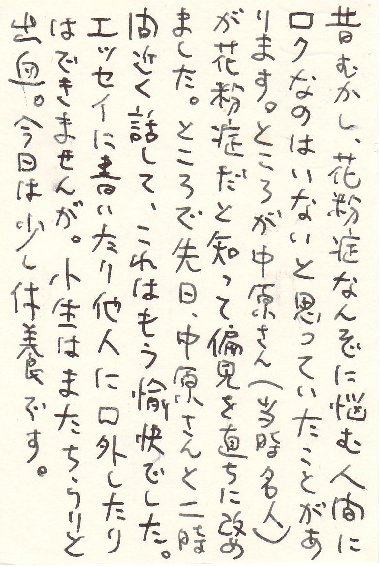 昔むかし、花粉症なんぞに悩む人間に
ロクなのはいないと思っていたことがあ
ります。ところが中原さん（当時名人）
が花粉症だと知って偏見を直ちに改め
ました。ところで先日、中原さんと二時
間近く話して、これはもう愉快でした。
エッセイに書いたり他人に口外したり
はできませんが。小生はまたちらりと
出血。今日は少し体養良です。